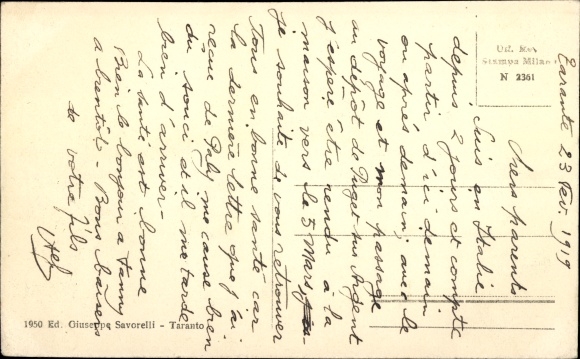 Tarante 23 Fév. 1919
Chers parents
Suis en Italie
depuis 2 jours et compte
partir d'ici demain
ou après demain, avec le
voyage et mon passage
au dépôt de Puget sur Argent
j'espère être rendu à la
maison vers le 5 Mars
Je souhaite de vous retrouver
Tous en bonne santé car
la dernière lettre que j'ai
reçue de Paly me cause bien
du souci et il me tarde
bien d'arriver-
La santé est bonne
Bien le bonjour a Fanny
a bientôt - Bons baisers
de votre fils
Uff. Rev.
Stampa Milano
N 2361
1950 Ed. Giuseppe Savorelli - Taranto